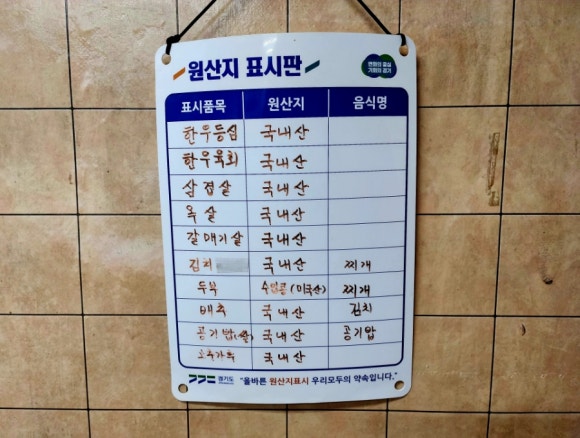 원산지 표시판
변화의 중심
기회의 경기
표시품목 원산지 음식명
한우등심 국내산
한우육회 국내산
삼겹살 국내산
목살 국내산
갈매기살 국내산
김치 국내산 찌개
두부 수입콩(미국산) 찌개
배추 국내산 김치
공기밥(쌀) 국내산 공기밥
고추가루 국내산
경기도 "올바른 원산지표시 우리모두의 약속입니다."